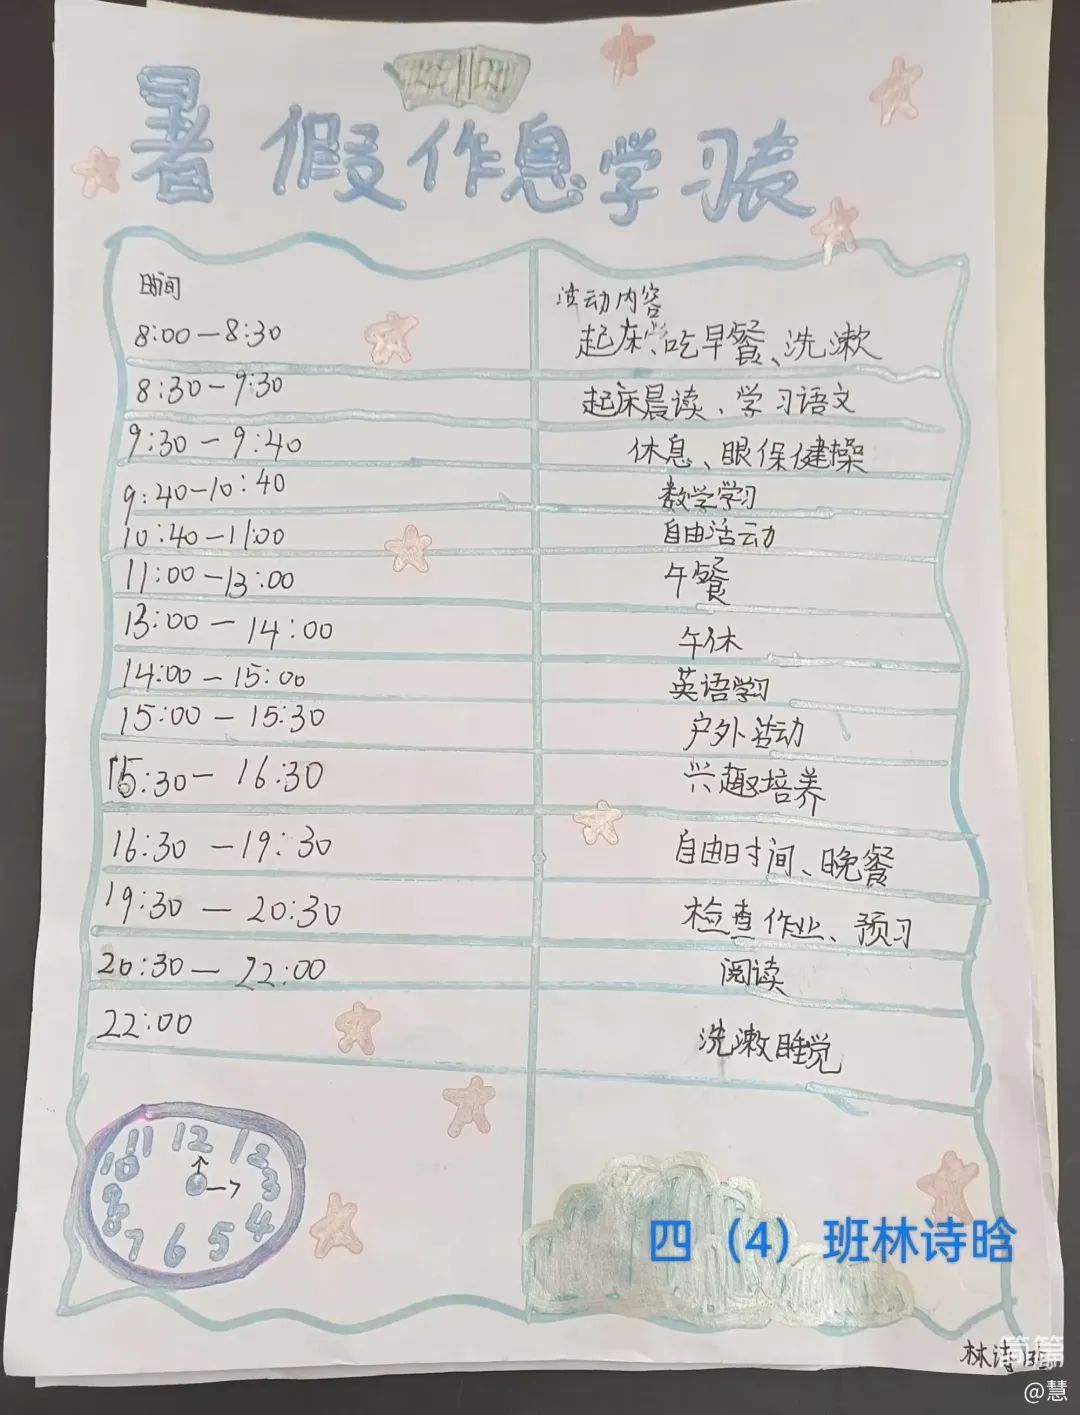 暑假作息学习表
时间 活动内容
8:00-8:30 起床、吃早餐、洗漱
8:30-9:30 起床晨读、学习语文
9:30-9:40 休息、眼保健操
9:40-10:40 数学学习
10:40-11:00 自由活动
11:00-13:00 午餐
13:00-14:00 午休
14:00-15:00 英语学习
15:00-15:30 户外活动
15:30-16:30 兴趣培养
16:30-19:30 自由时间、晚餐
19:30-20:30 检查作业、预习
20:30-22:00 阅读
22:00 洗漱睡觉
11 12 1
10 2
3
8 4
7 6 5
四（4）班林诗晗
林诗
简篇
@慧